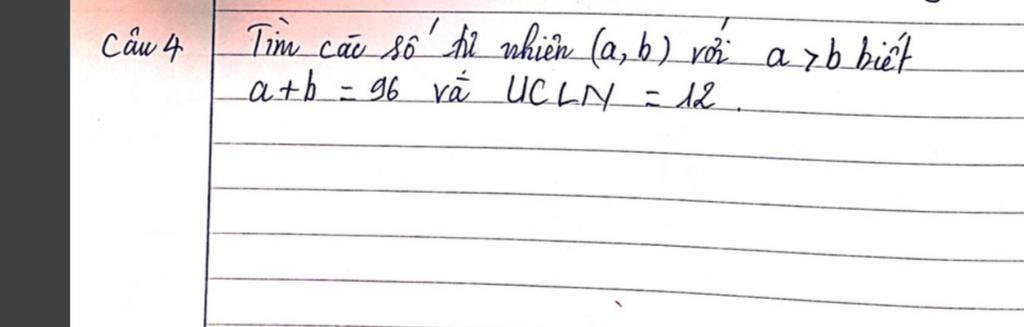 Câu 4 Tìm các số tự nhiên (a, b) với a > b biết
a + b = 96 và UCLN = 12.